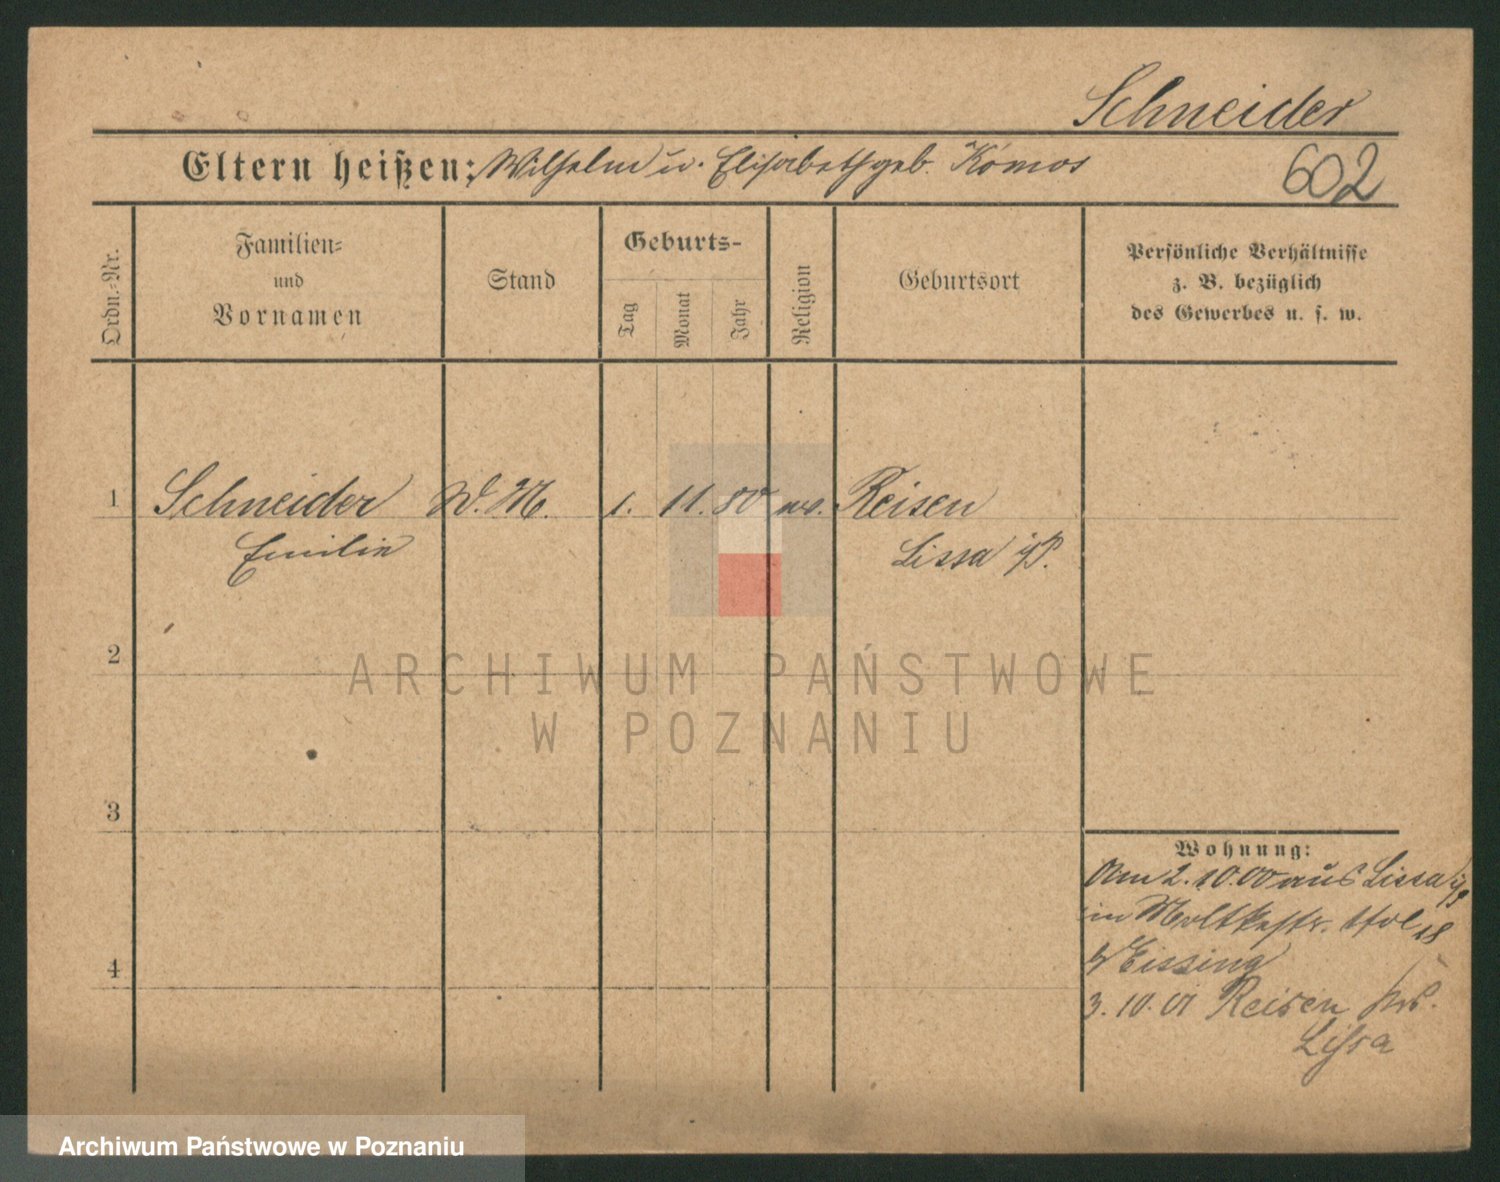 Schneider
Eltern heißen: Wilhelm u. Elisabeth geb. Komos
602
Ordn.-Nr.
Familien-
und
Vornamen
Stand
Geburts-
Tag
Monat
Jahr
Religion
Geburtsort
Persönliche Verhältnisse
z. B. bezüglich
des Gewerbes u. s. w.
1 Schneider W. M. 1. 11. 80 Reisen
Emilie Lissa i/P.
2
ARCHIWUM PAŃSTWOWE
W POZNANIU
3
Wohnung:
Am 2.10.00 aus Lissa i/P
in Moltkestr.
4
3.10.01 Reisen Krs.
Lissa
Archiwum Państwowe w Poznaniu